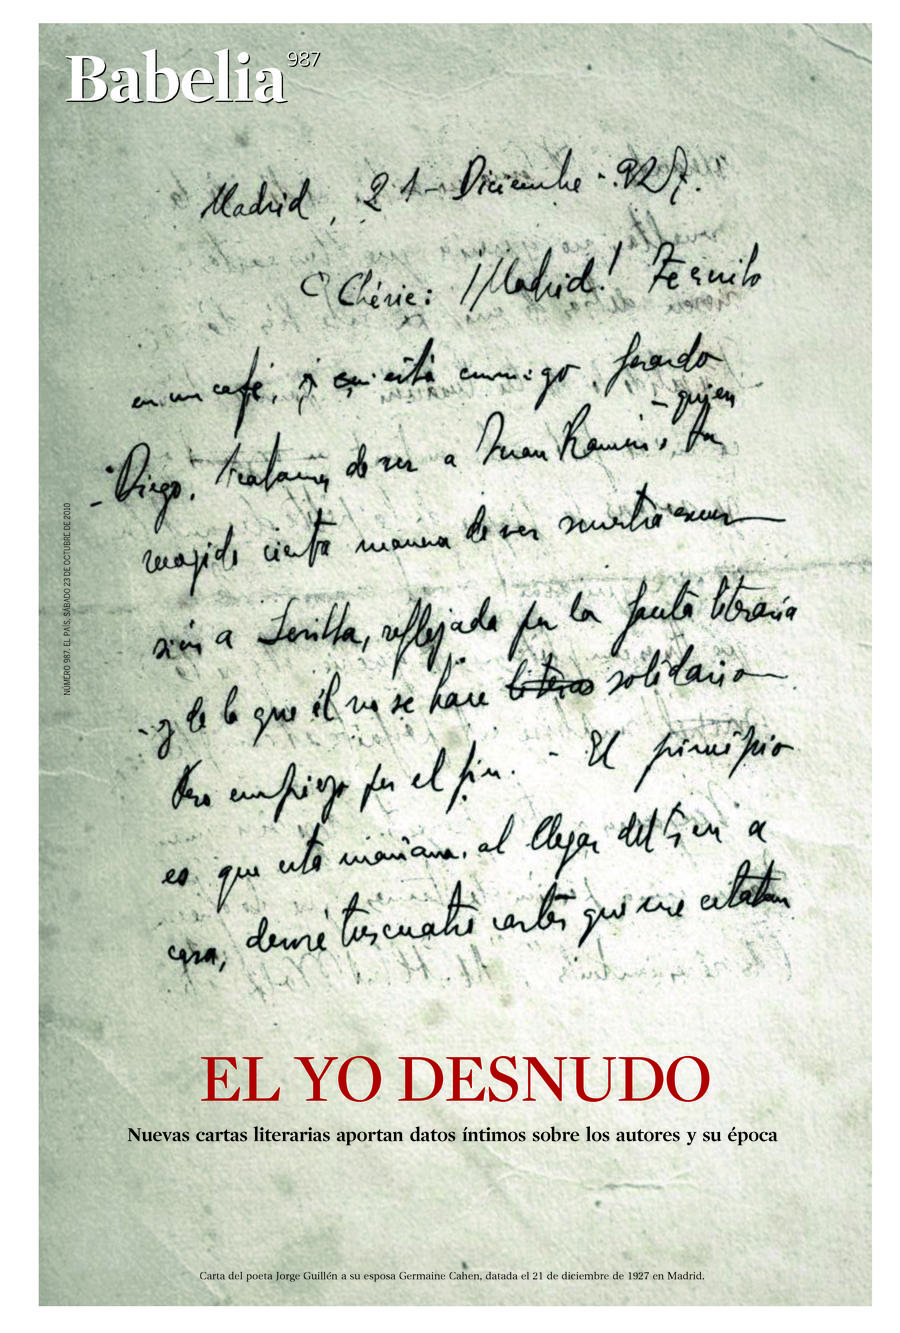 Babelia 987
Madrid, 21 - Diciembre - 927.
Chérie: ¡Madrid! Te escribo
en un café, y está conmigo Gerardo
- quien
- Diego. Tratamos de ver a Juan Ramón, ha
recogido cierta manera de ver nuestra excur-
sión a Sevilla, reflejada por la Gaceta literaria
- y de lo que él no se hace solidario -
Pero empiezo por el fin. - El principio
es que esta mañana, al llegar del tren a
casa, devoré tres cuatro cartas que me estaban
NÚMERO 987. EL PAÍS, SÁBADO 23 DE OCTUBRE DE 2010
EL YO DESNUDO
Nuevas cartas literarias aportan datos íntimos sobre los autores y su época
Carta del poeta Jorge Guillén a su esposa Germaine Cahen, datada el 21 de diciembre de 1927 en Madrid.